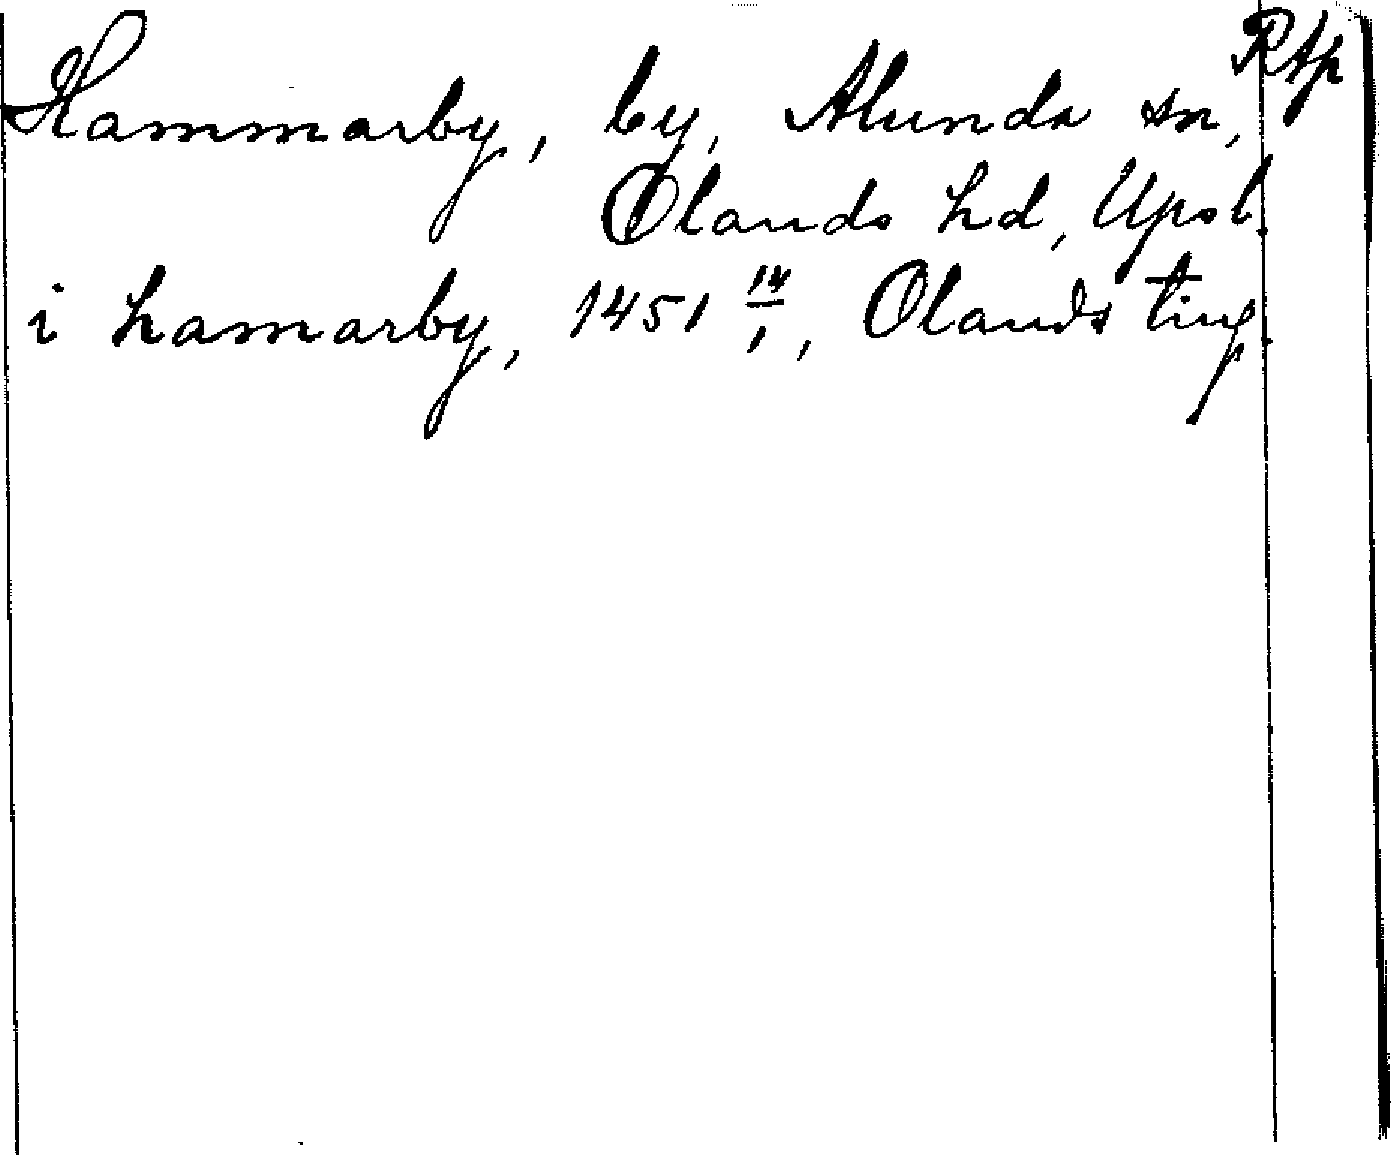 Rtp
Hammarby, by, Alunda sn,
Olands hd, Upsl.
i hamarby, 1451 14/1, Olands ting.